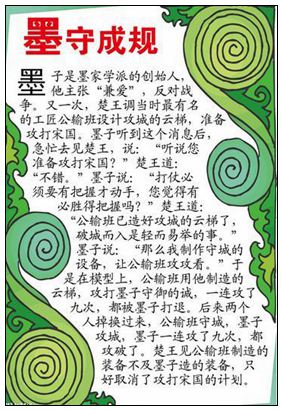 墨守成规
墨子是墨家学派的创始人，
他主张“兼爱”，反对战
争。又一次，楚王调当时最有名
的工匠公输班设计攻城的云梯，准备
攻打宋国。墨子听到这个消息后，
急忙去见楚王，说：“听说您
准备攻打宋国？”楚王道：
“不错。”墨子说：“打仗必
须要有把握才动手，您觉得有
必胜得把握吗？”楚王道：
“公输班已造好攻城的云梯了，
破城而入是轻而易举的事。”
墨子说：“那么我制作守城的
设备，让公输班攻攻看。”于
是在模型上，公输班用他制造的
云梯，攻打墨子守御的诚，一连攻了
九次，都被墨子打退。后来两个
人掉换过来，公输班守城，墨子
攻城，墨子一连攻了九次，都
攻破了。楚王见公输班制造的
装备不及墨子造的装备，只
好取消了攻打宋国的计划。